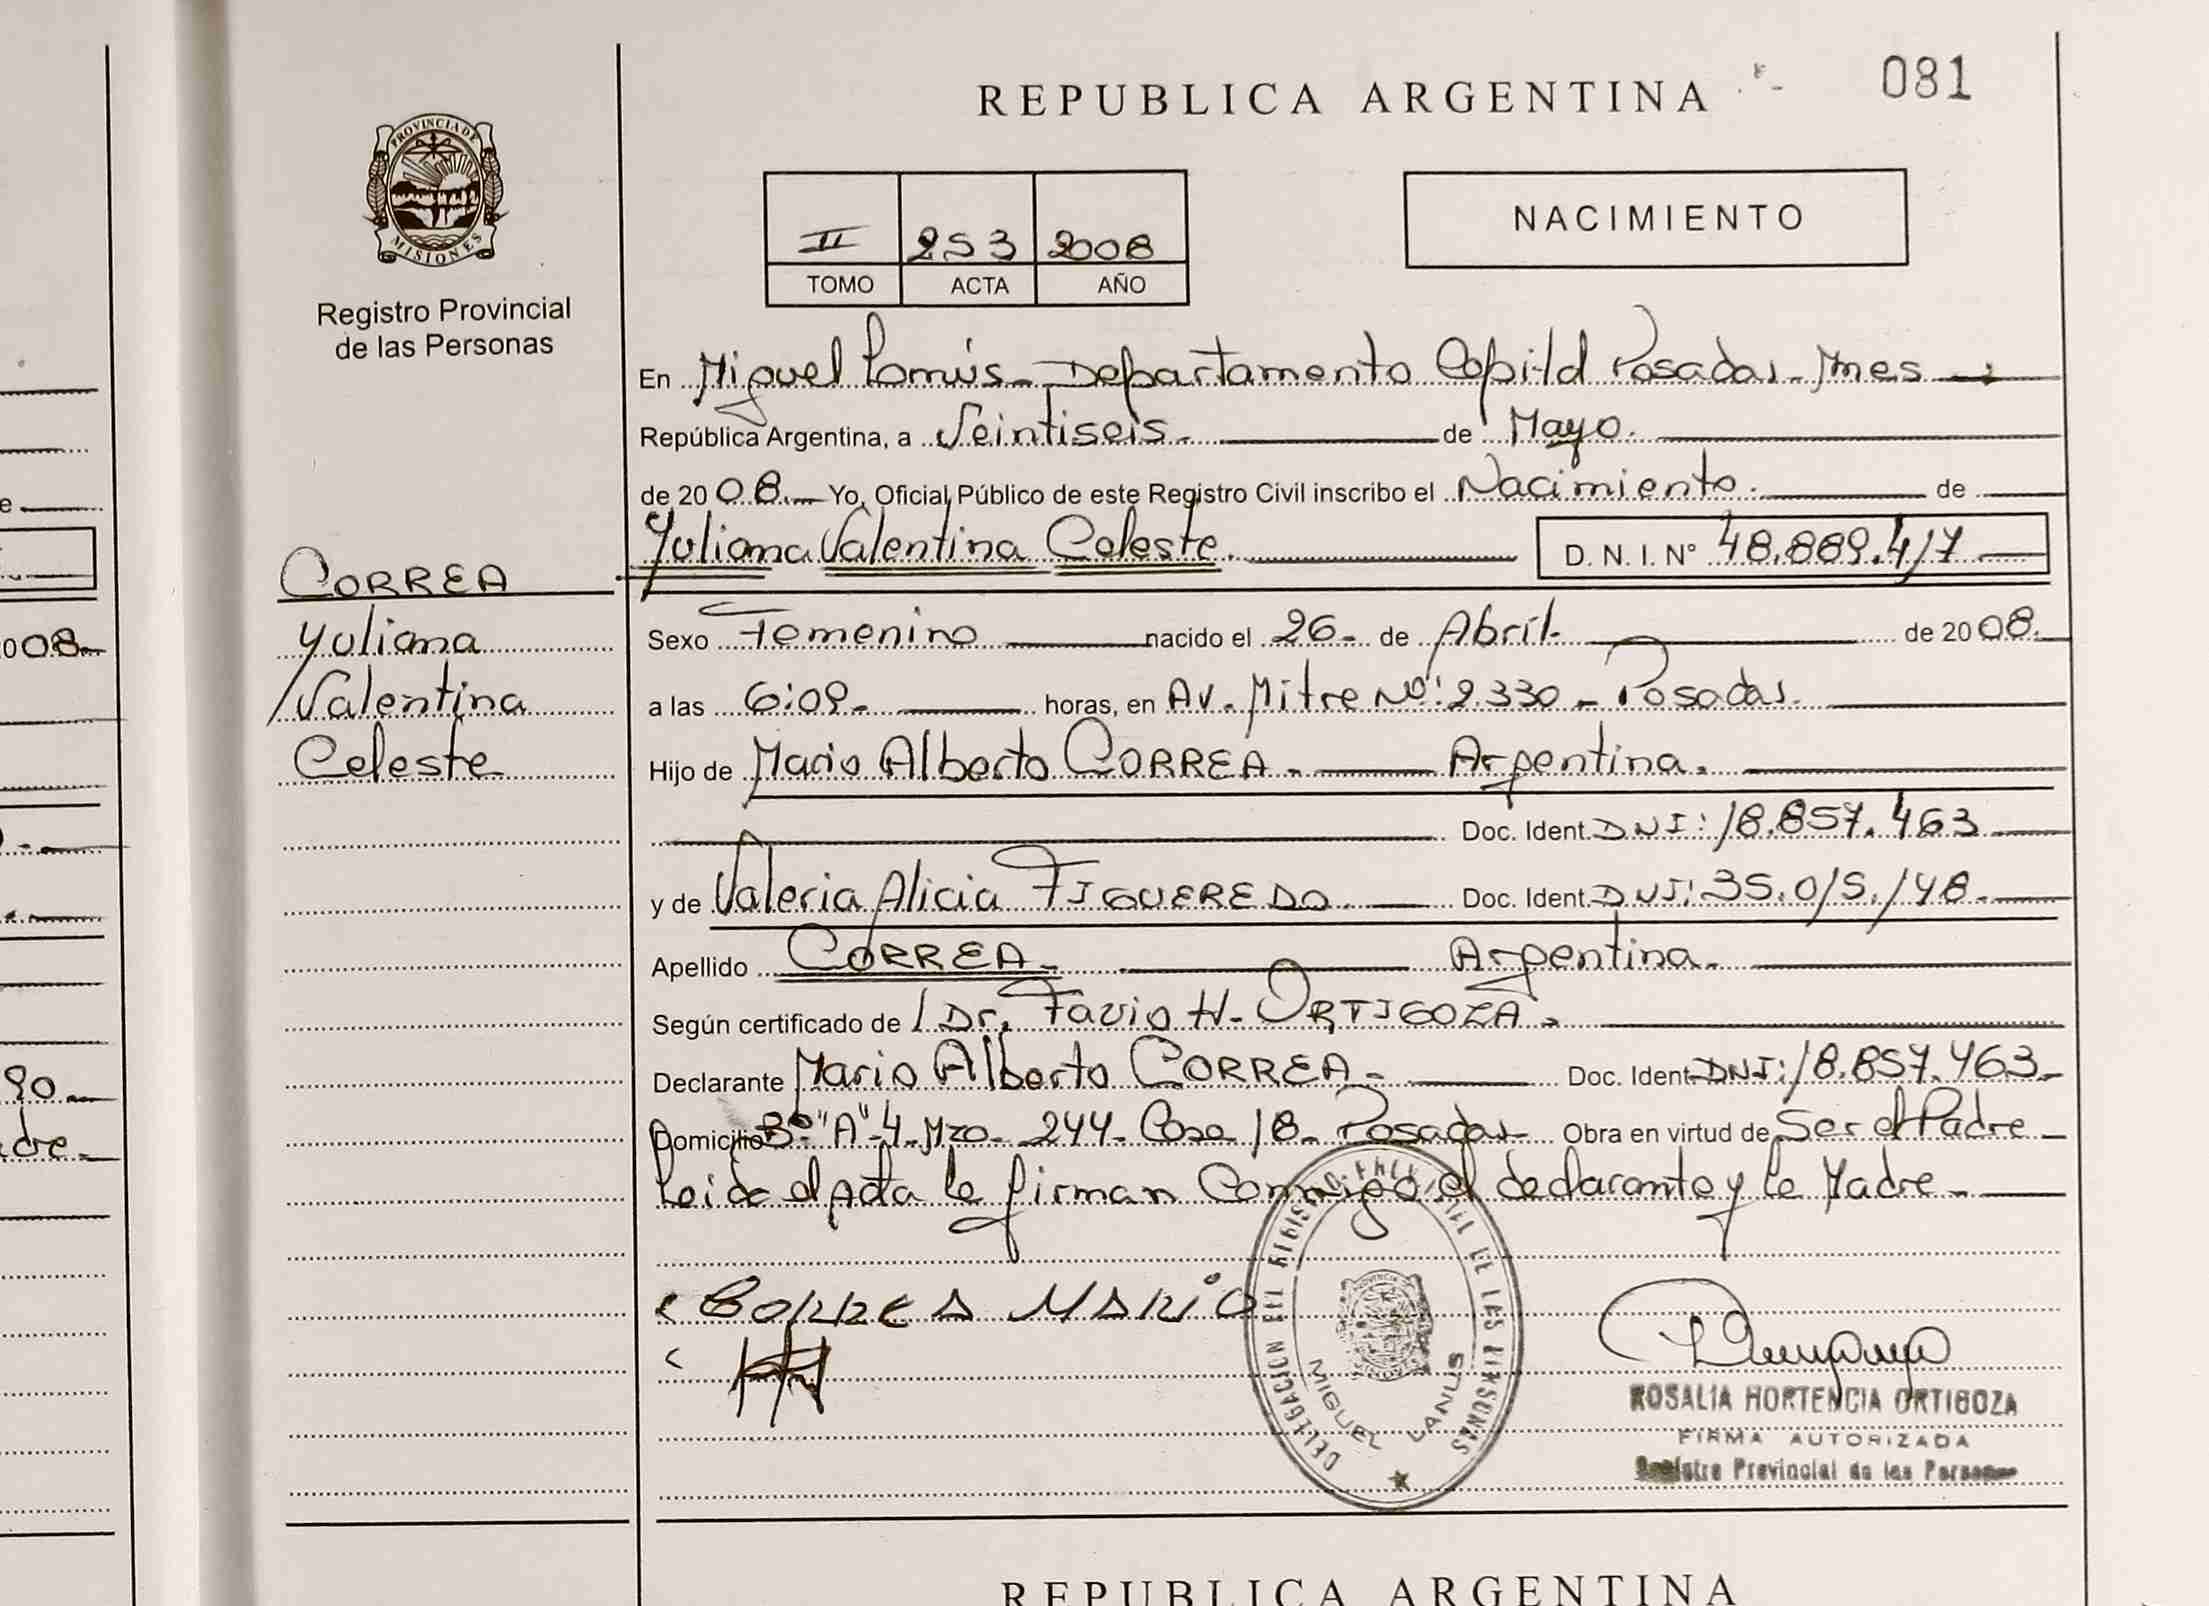 REPUBLICA ARGENTINA
081
PROVINCIA DE
MISIONES
Registro Provincial
de las Personas
II 253 2008
TOMO ACTA AÑO
NACIMIENTO
En Miguel Lanús - Departamento Capital Posadas - Mnes
República Argentina, a Veintiseis. de Mayo.
de 2008. Yo, Oficial Público de este Registro Civil inscribo el Nacimiento. de
Yuliana Valentina Celeste. D. N. I. N° 48.889.417
CORREA
Yuliana
Valentina
Celeste
Sexo Femenino nacido el 26 - de Abril. de 2008.
a las 6:09 - horas, en Av. Mitre Nº: 2.330 - Posadas.
Hijo de Mario Alberto CORREA - Argentina.
Doc. Ident. DNI: 18.857.463
y de Valeria Alicia FIGUEREDO Doc. Ident. DNI: 35.015.148.
Apellido CORREA - Argentina.
Según certificado de / Dr. Favio H. ORTIGOZA.
Declarante Mario Alberto CORREA - Doc. Ident. DNI: 18.857.463 -
Domicilio Bº "A" 4 - Mza. 244 - Casa 18 - Posadas - Obra en virtud de Ser el Padre -
Leida el Acta la firman Conmigo el declarante y la Madre -
CORREA MARIO
DELEGACION DEL REGISTRO PROVINCIAL DE LAS PERSONAS
MIGUEL LANUS
ROSALIA HORTENCIA ORTIGOZA
FIRMA AUTORIZADA
Registro Provincial de las Personas
REPUBLICA ARGENTINA
008
90
dre